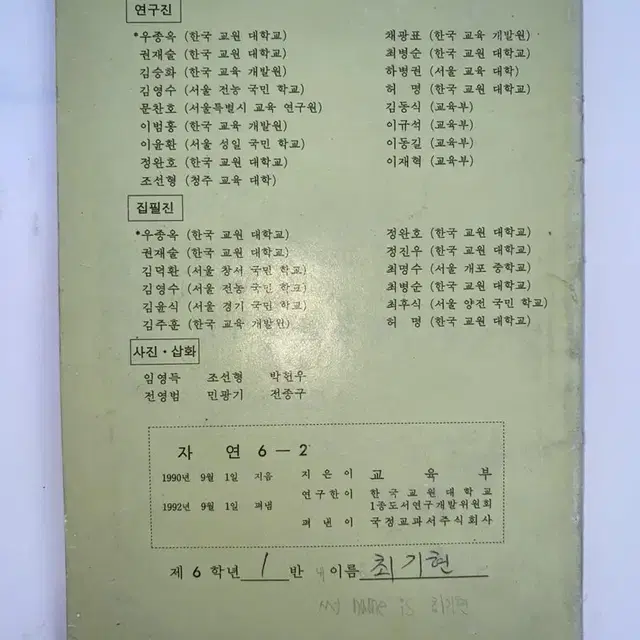 연구진
*우종옥 (한국 교원 대학교) 채광표 (한국 교육 개발원)
권재술 (한국 교원 대학교) 최병순 (한국 교원 대학교)
김승화 (한국 교육 개발원) 하병권 (서울 교육 대학)
김영수 (서울 전농 국민 학교) 허 명 (한국 교원 대학교)
문찬호 (서울특별시 교육 연구원) 김동식 (교육부)
이범홍 (한국 교육 개발원) 이규석 (교육부)
이윤환 (서울 성일 국민 학교) 이동길 (교육부)
정완호 (한국 교원 대학교) 이재혁 (교육부)
조선형 (청주 교육 대학)
집필진
*우종옥 (한국 교원 대학교) 정완호 (한국 교원 대학교)
권재술 (한국 교원 대학교) 정진우 (한국 교원 대학교)
김덕환 (서울 창서 국민 학교) 최명수 (서울 개포 중학교)
김영수 (서울 전농 국민 학교) 최병순 (한국 교원 대학교)
김윤식 (서울 경기 국민 학교) 최후식 (서울 양전 국민 학교)
김주훈 (한국 교육 개발원) 허 명 (한국 교원 대학교)
사진·삽화
임영득 조선형 박헌우
전영범 민광기 전중구
자 연 6-2
1990년 9월 1일 지음 지 은 이 교 육 부
연구한이 한국교원대학교
1992년 9월 1일 펴냄 1종도서연구개발위원회
펴 낸 이 국정교과서주식회사
제 6 학년 1 반 이름 최기현
my name is